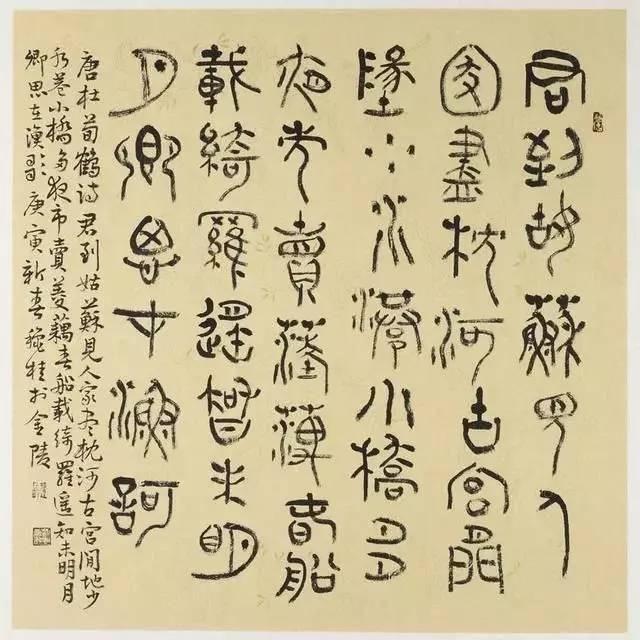 君到姑蘇見人
家盡枕河古宮閒
地少水港小橋多
夜市賣菱藕春船
載綺羅遥知未明
月卿思才漁訶
唐杜荀鶴诗君到姑蘇見人家尽枕河古宮閒地少
水巷小橋多夜市賣菱藕春船載綺羅遥知未明月
卿思在漁歌庚寅新春桂於金陵